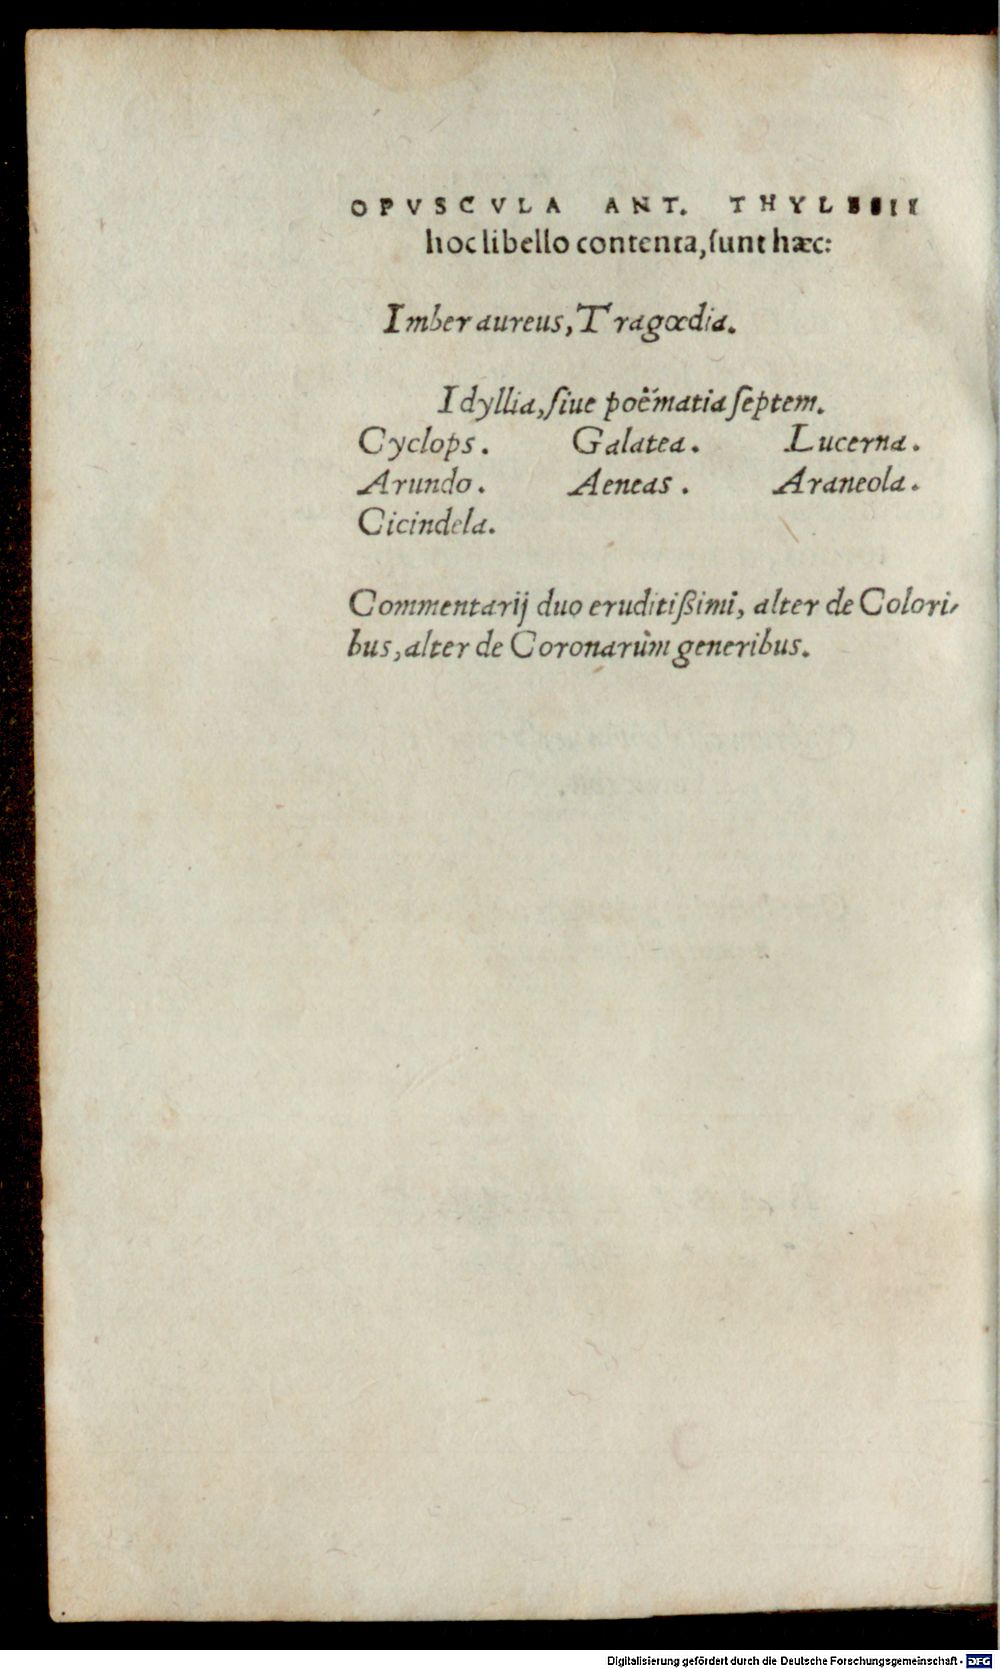 OPVSCVLA ANT. THYLESII
hoc libello contenta, ſunt hæc:
Imber aureus, Tragœdia.
Idyllia, ſiue poëmatia ſeptem.
Cyclops. Galatea. Lucerna.
Arundo. Aeneas. Araneola.
Cicindela.
Commentarij duo eruditißimi, alter de Colori-
bus, alter de Coronarùm generibus.
Digitalisierung gefördert durch die Deutsche Forschungsgemeinschaft - DFG